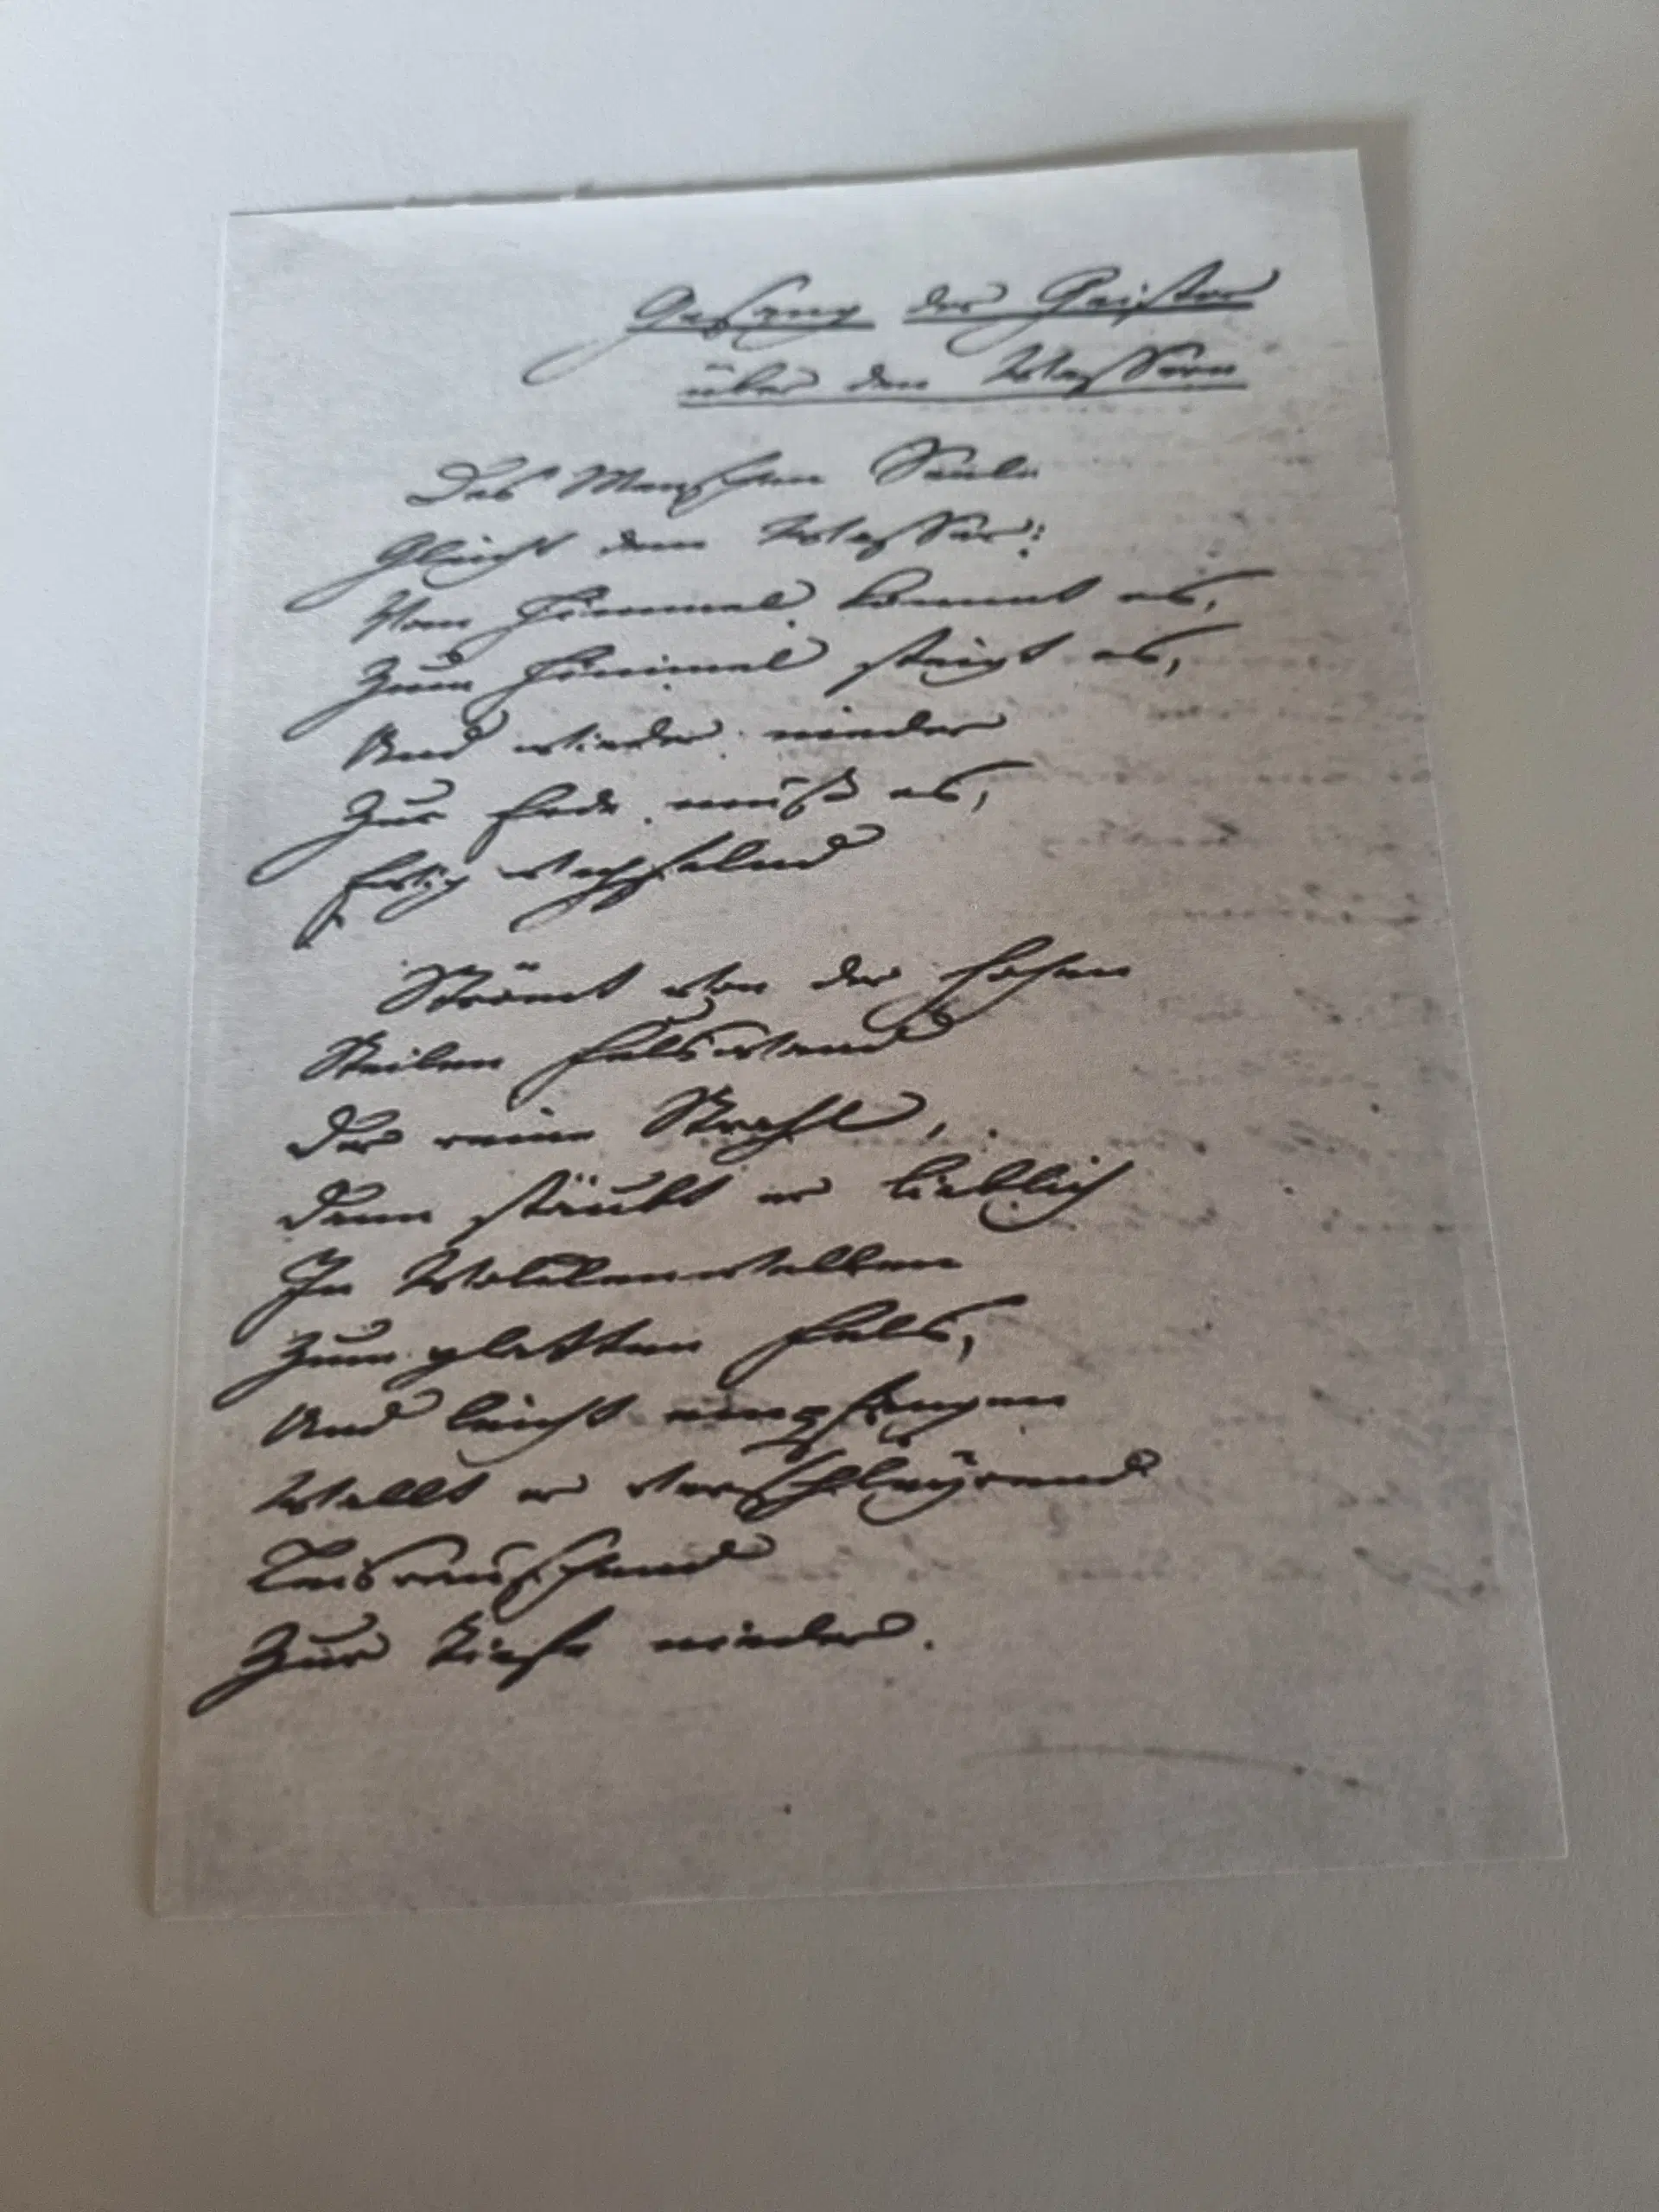 Gesang der Geister
über den Wassern
Des Menschen Seele
Gleicht dem Wasser:
Vom Himmel kommt es,
Zum Himmel steigt es,
Und wieder nieder
Zur Erde muß es,
Ewig wechselnd
Strömt von der hohen
Steilen Felswand
Der reine Strahl,
Dann stäubt er lieblich
In Wolkenwellen
Zum glatten Fels,
Und leicht empfangen
Wallt er verschleyrend
Leisrauschend
Zur Tiefe nieder.